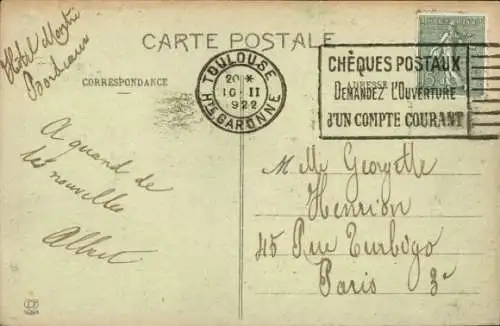 Hôtel Montré
Bordeaux
CARTE POSTALE
CORRESPONDANCE
TOULOUSE
20 *
10 - II
1922
Hte GARONNE
CHÈQUES POSTAUX
ADRESSE
DEMANDEZ L'OUVERTURE
D'UN COMPTE COURANT
A quand de
tes nouvelles
Albert
Melle Georgette
Henrion
45 Rue Turbigo
Paris 3e